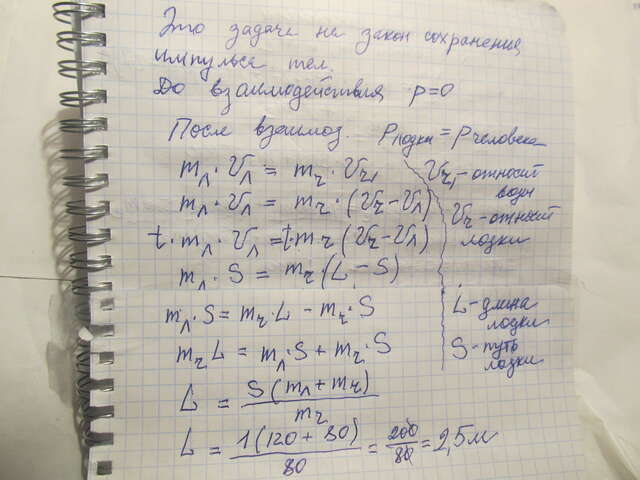 Это задача на закон сохранения
импульса тел.
До взаимодействия p=0
После взаимод. Pлодки = Pчеловека
mл · Vл = mч · Vч₁
Vч₁ - относит воды
mл · Vл = mч · (Vч - Vл)
Vч - относит лодки
t · mл · Vл = t · mч (Vч - Vл)
mл · S = mч (L - S)
mл · S = mч · L - mч · S
L - длина лодки
mч L = mл · S + mч · S
S - путь лодки
L = S (mл + mч) / mч
L = 1 (120 + 80) / 80 = 200 / 80 = 2,5м